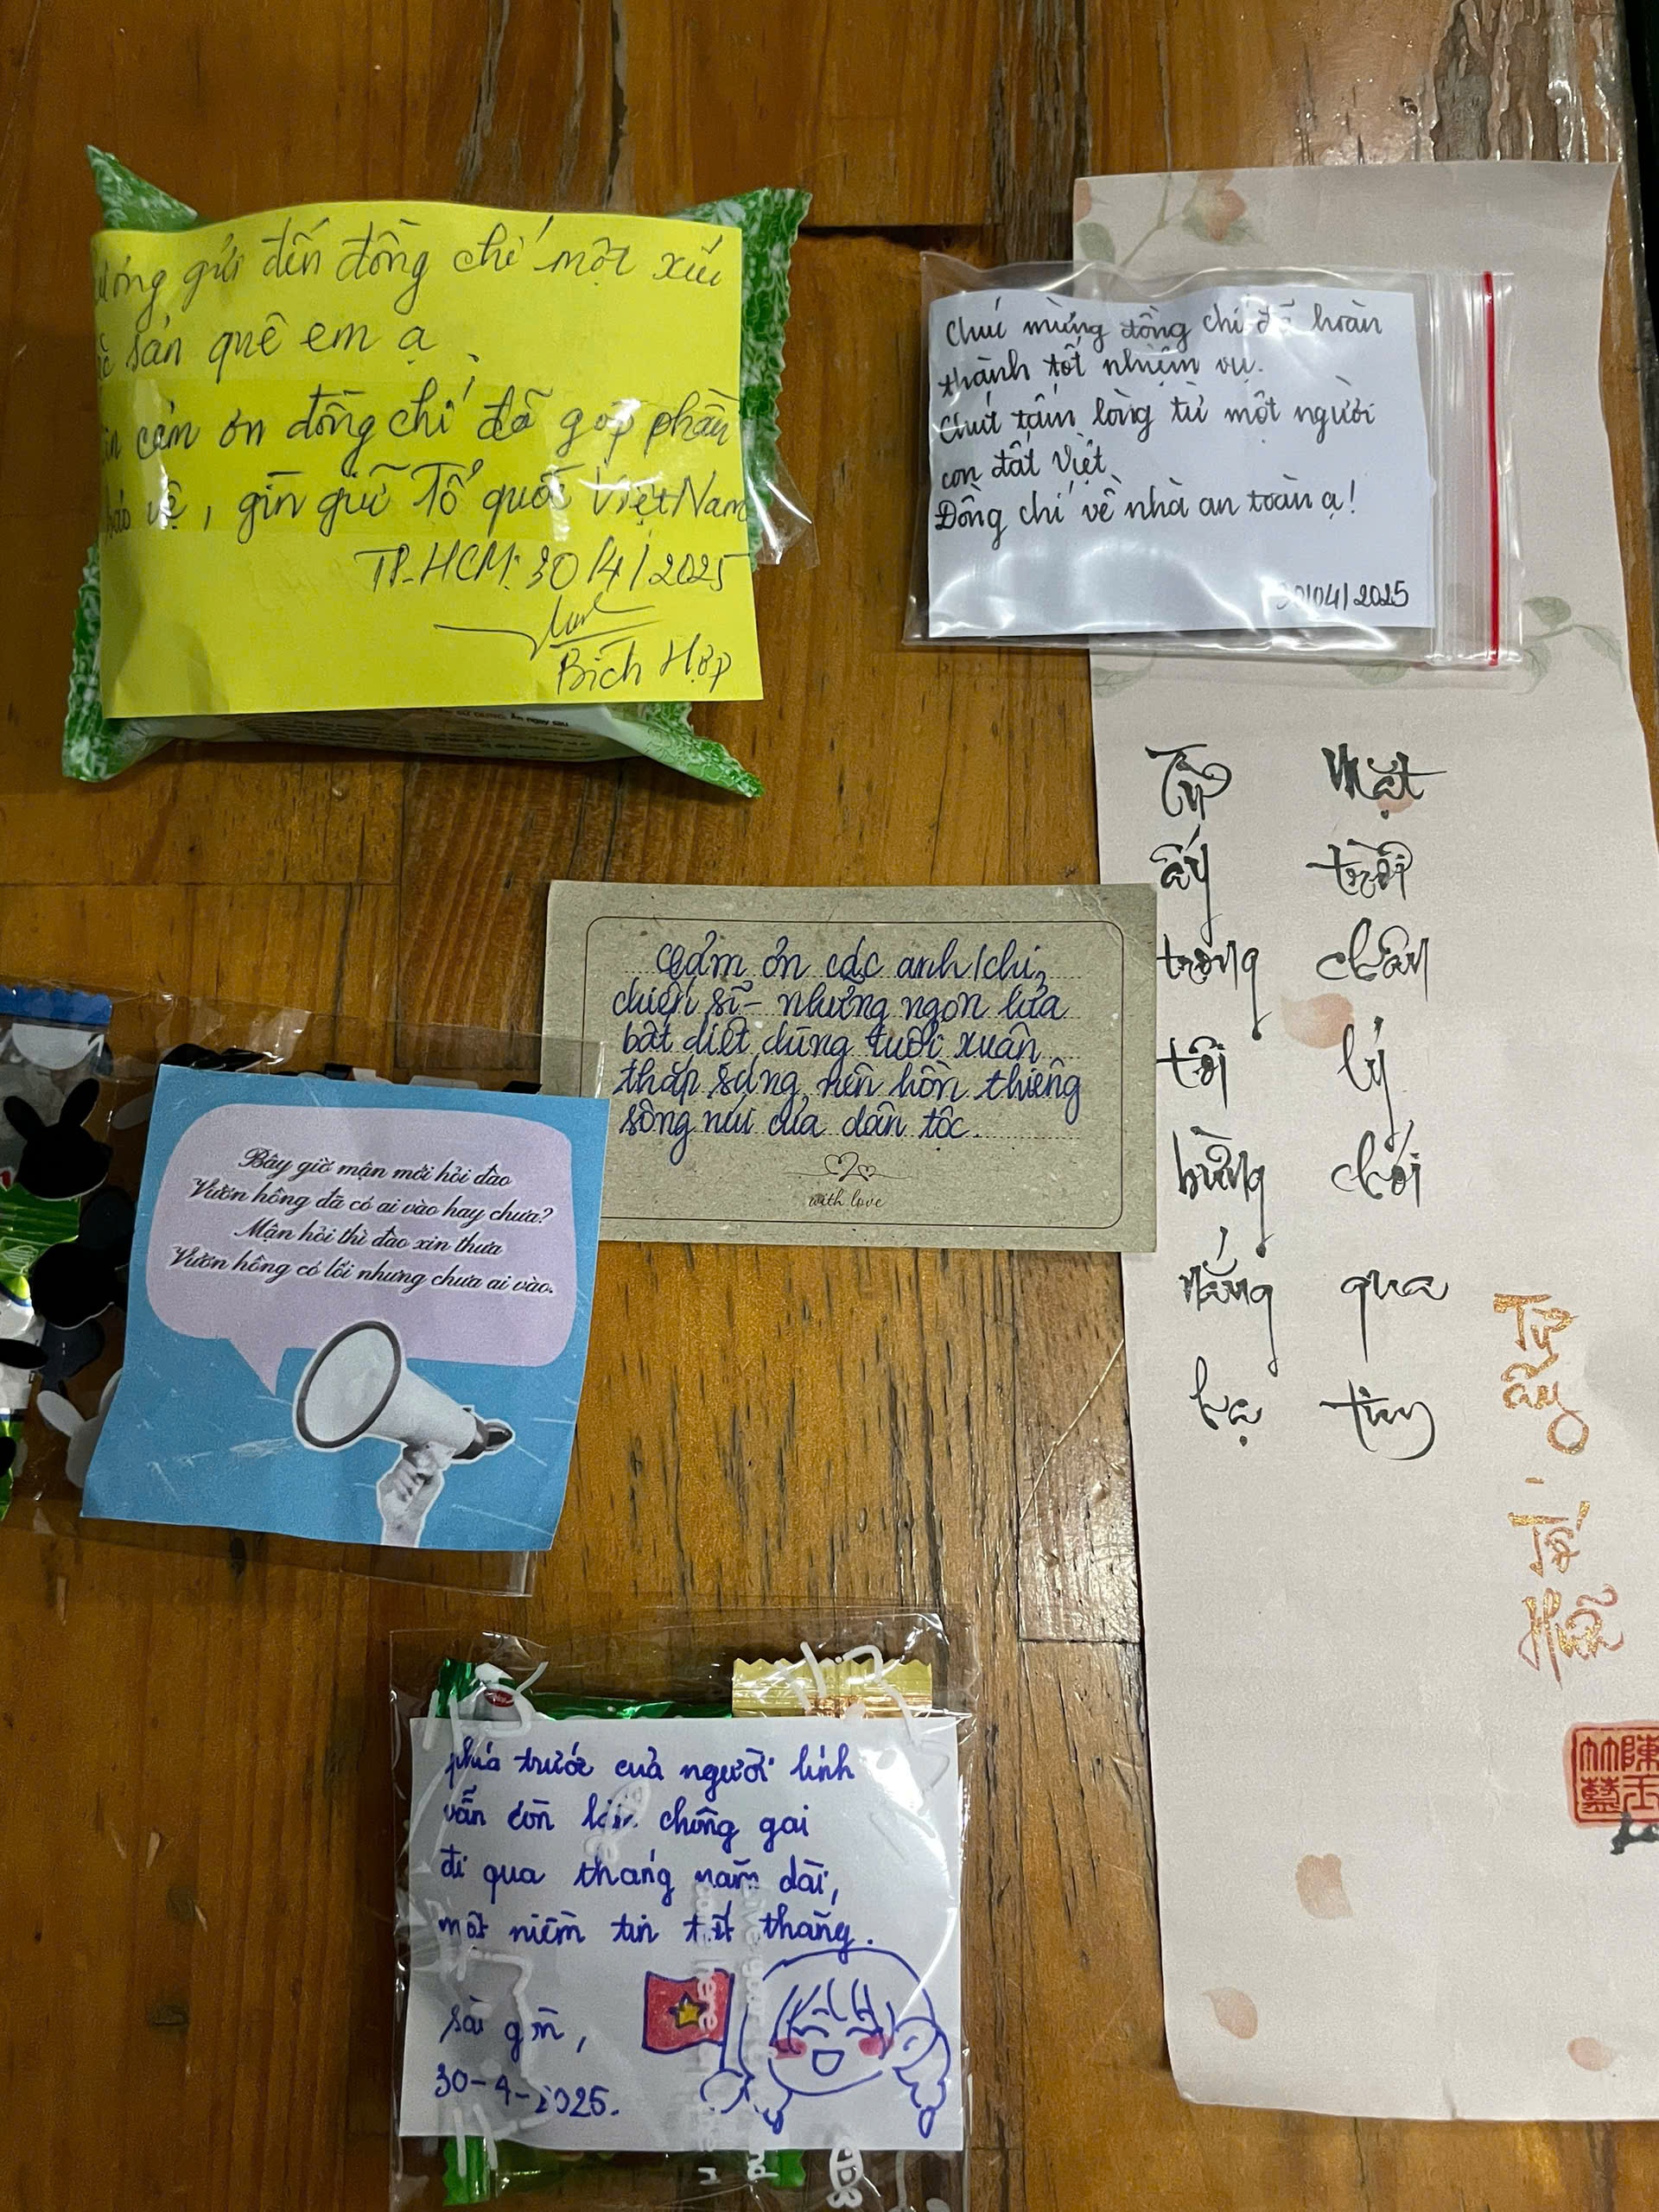 gửi đến đồng chí một xíu
sản quê em ạ.
cảm ơn đồng chí đã góp phần
vệ, gìn giữ Tổ quốc Việt Nam
TP.HCM: 30/4/2025
Bích Hợp
Chúc mừng đồng chí đã hoàn
thành tốt nhiệm vụ.
Chút tấm lòng từ một người
con đất Việt
Đồng chí về nhà an toàn ạ!
30/04/2025
Cảm ơn các anh/chị
chiến sĩ - những ngọn lửa
bất diệt dùng tuổi xuân
thắp sáng nên hồn thiêng
sông núi của dân tộc.
with love
Bây giờ mận mới hỏi đào
Vườn hồng đã có ai vào hay chưa?
Mận hỏi thì đào xin thưa
Vườn hồng có lối nhưng chưa ai vào.
Từ
ấy
trong
tôi
bừng
nắng
hạ
Mặt
trời
chân
lý
chói
qua
tim
Từ
ấy
-
Tố
Hữu
phía trước của người lính
vẫn còn lắm chông gai
đi qua tháng năm dài,
một niềm tin tất thắng.
sài gòn,
30-4-2025.